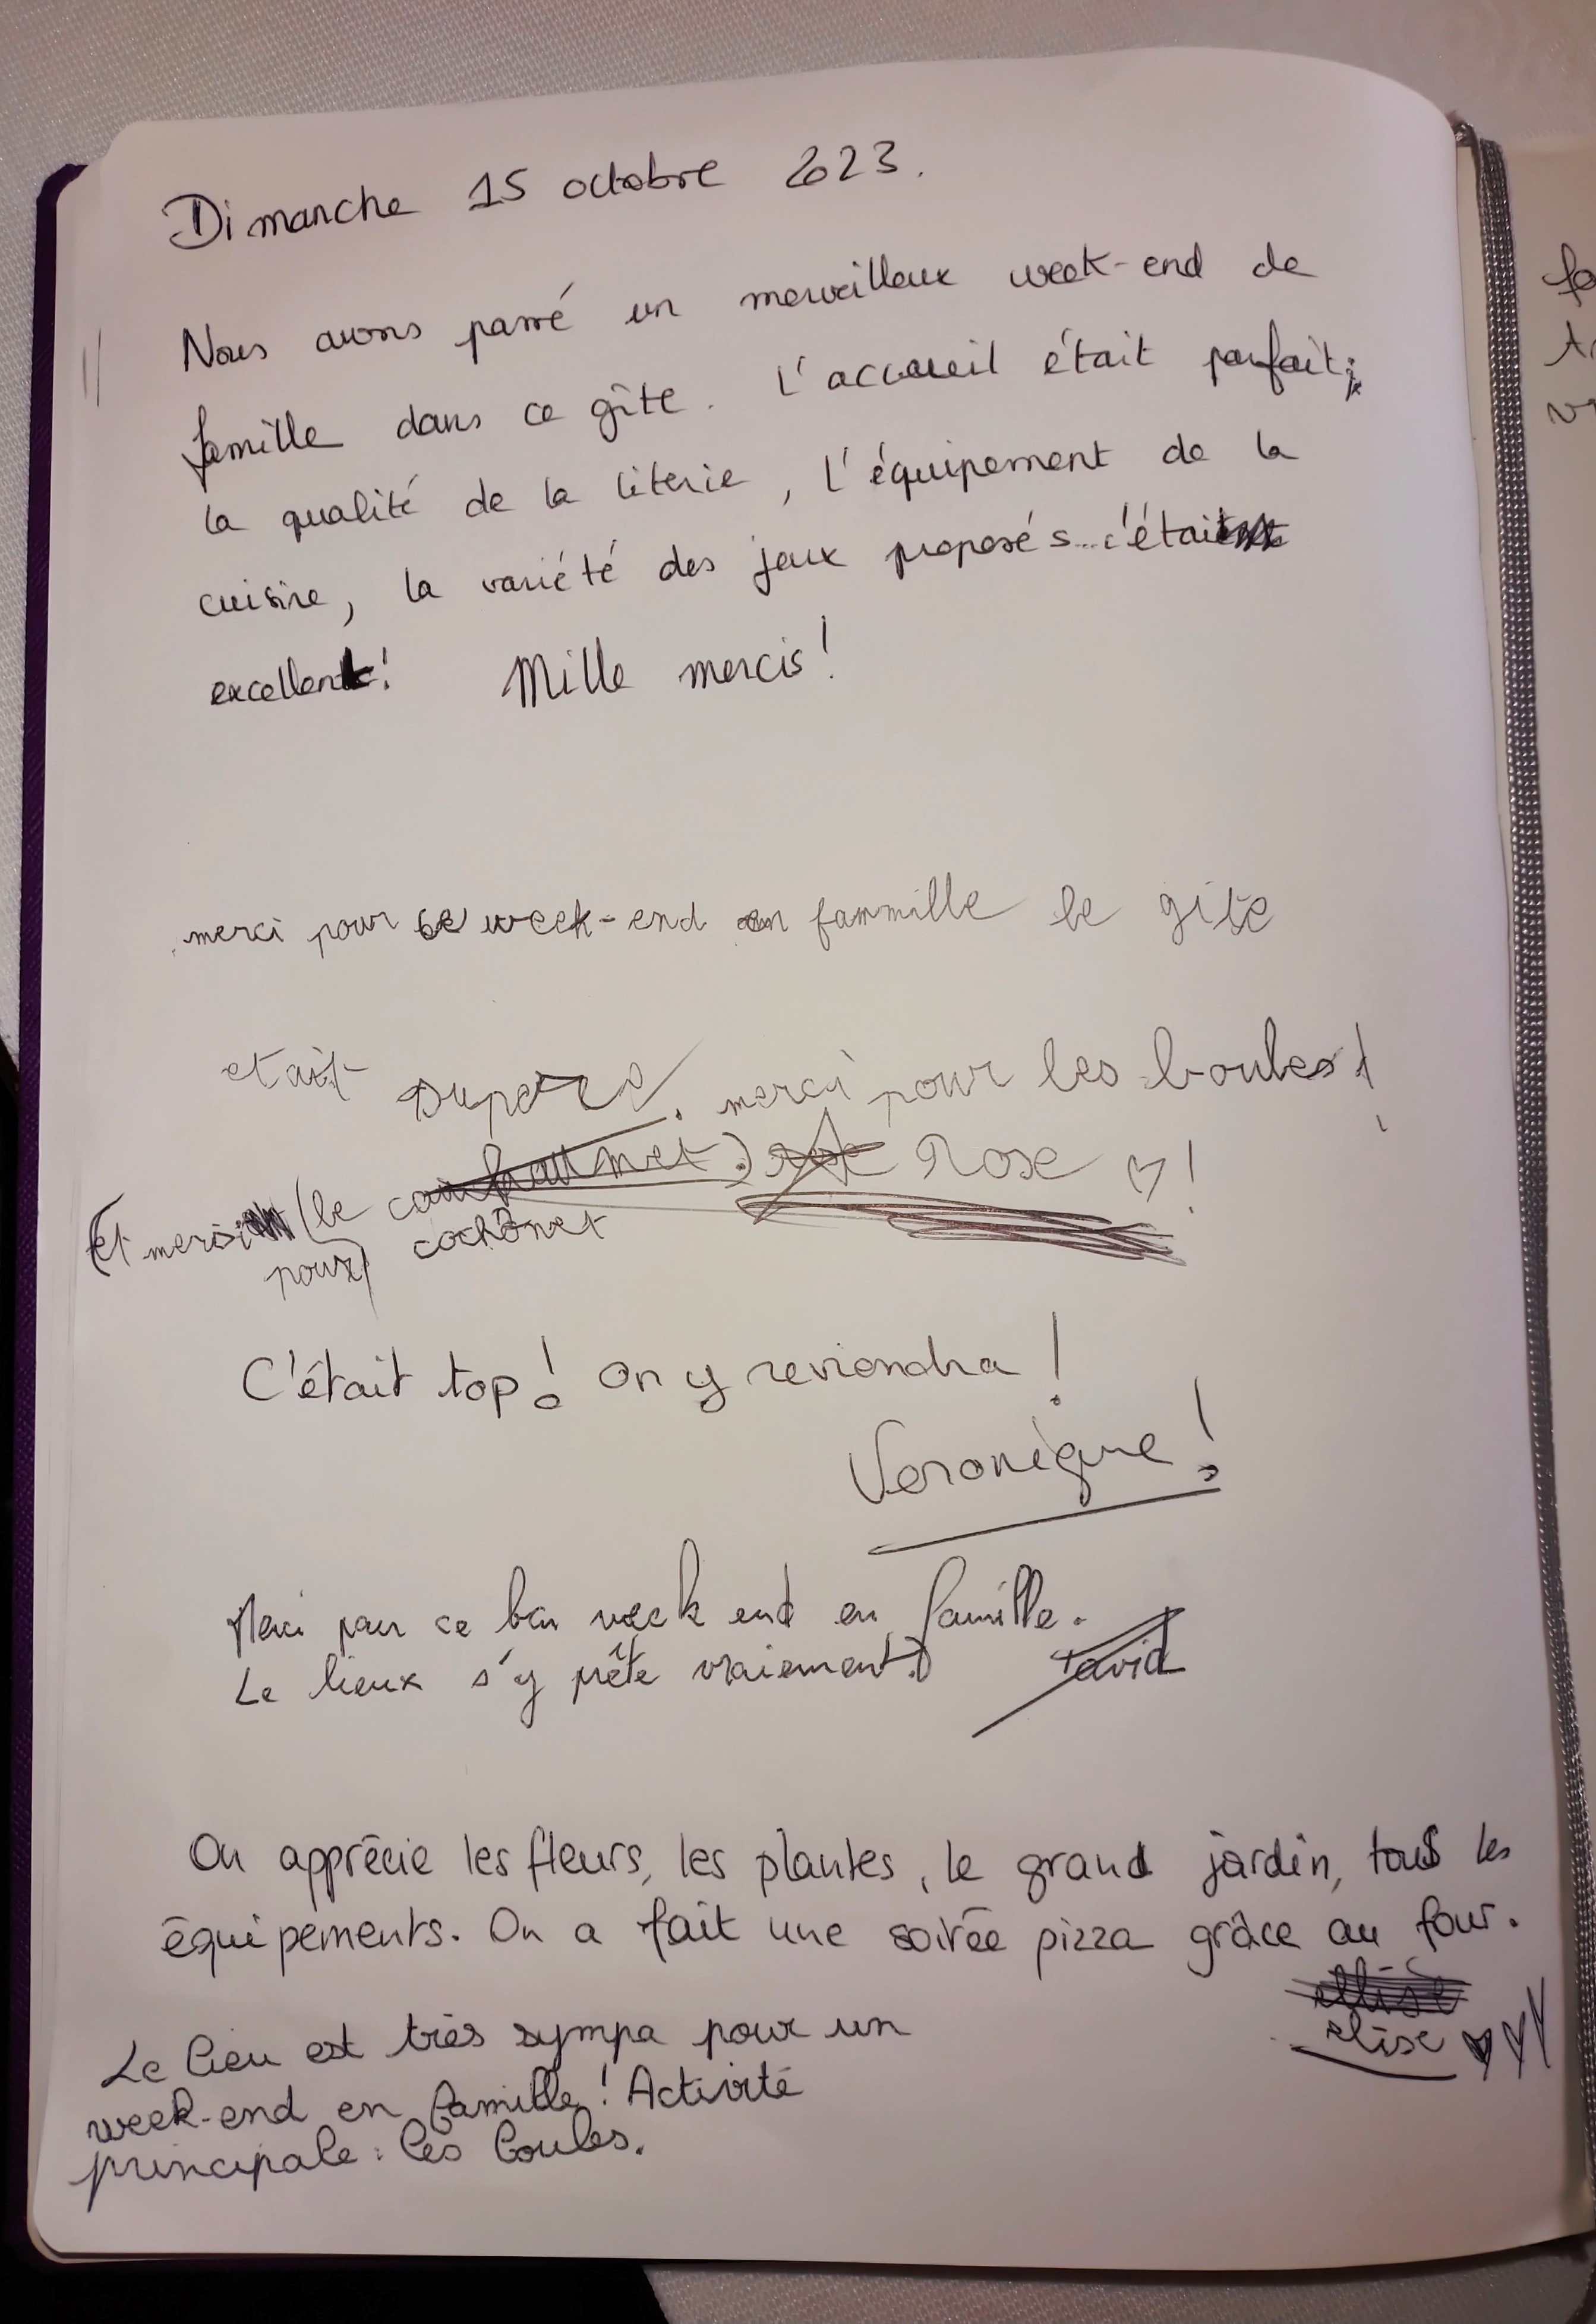 Dimanche 15 octobre 2023.
Nous avons passé un merveilleux week-end de
famille dans ce gîte. L'accueil était parfait;
la qualité de la literie, l'équipement de la
cuisine, la variété des jeux proposés... c'était
excellent! Mille mercis!
merci pour ce week-end en fammille le gite
etait super, merci pour les boules!
(Et merci pour (le cochônet Rose ♡!
C'était top! On y reviendra!
Veronique!
Merci pour ce bon week end en famille.
Le lieux s'y prête vraiement.
David
On apprécie les fleurs, les plantes, le grand jardin, tous les
équipements. On a fait une soirée pizza grâce au four.
elise ♥♥♥
Le lieu est très sympa pour un
week-end en famille! Activité
principale: les boules.